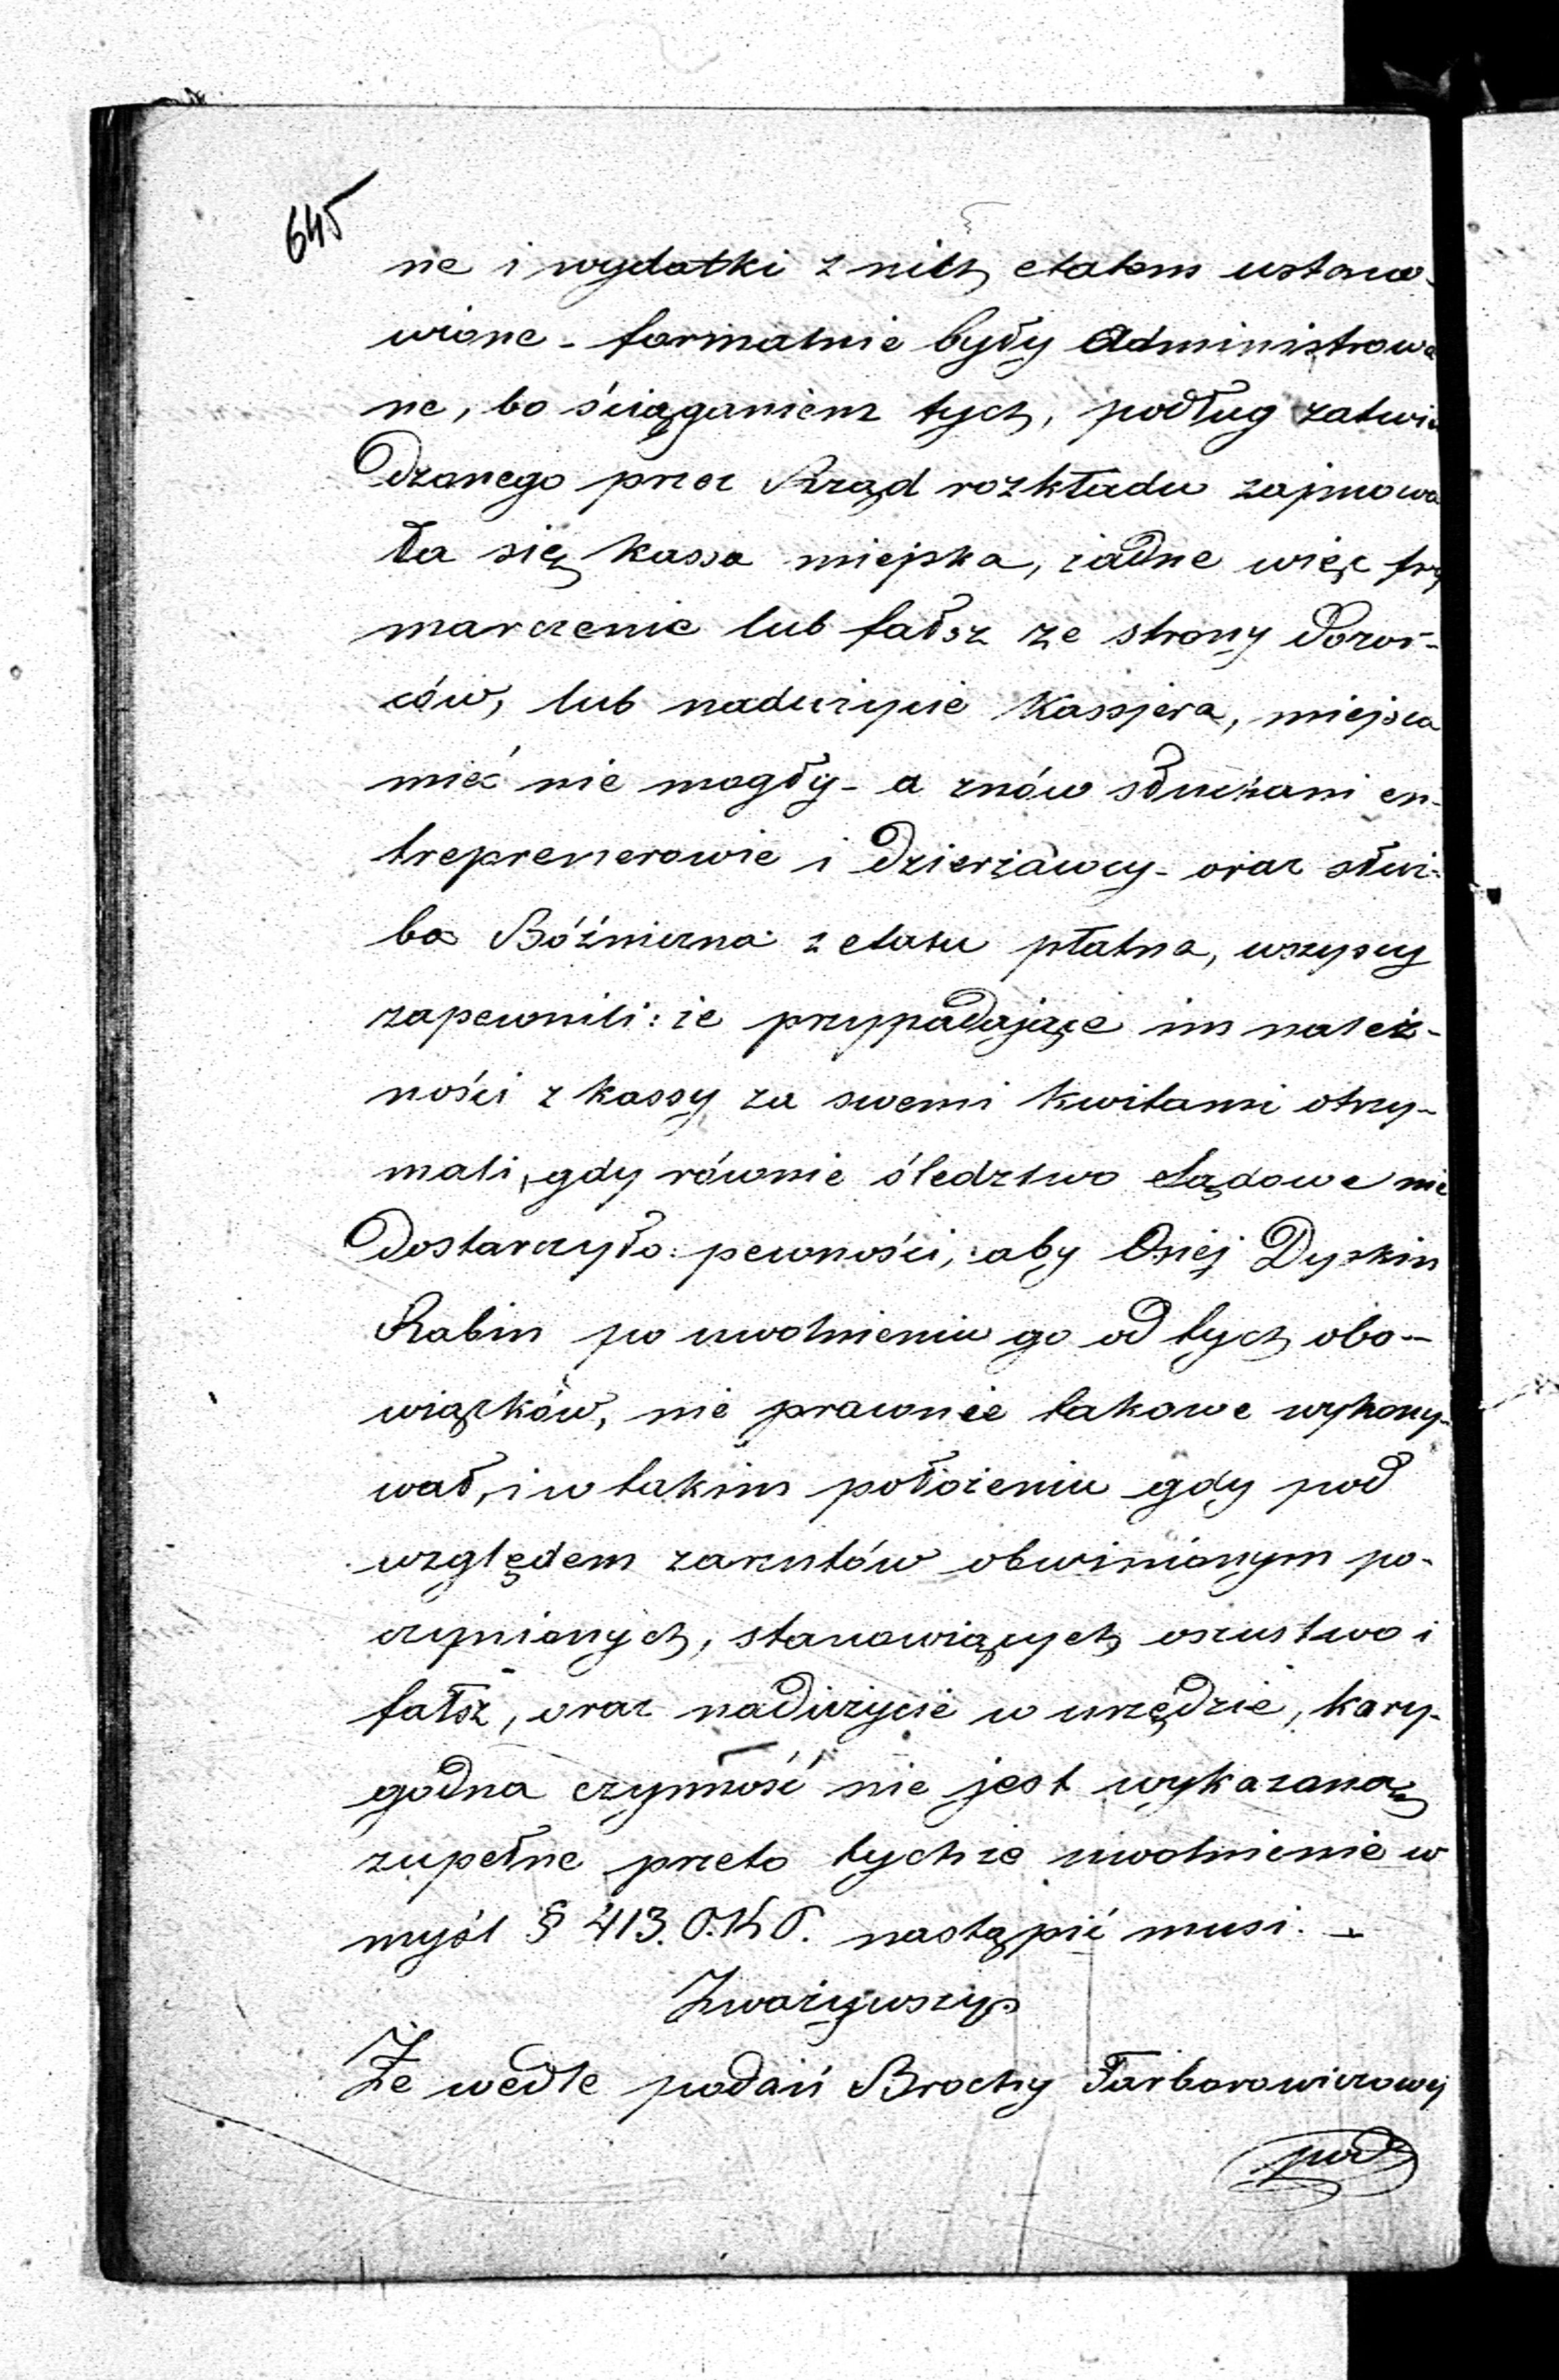 645
ne i wydatki z nich etatem ustano-
wione - formalnie były administrowa
ne, bo ściąganiem tych, podług zatwier
dzonego przez Rząd rozkładu zajmowa
ła się kassa miejska, żadne więc fry
marczenie lub fałsz ze strony Dozor-
ców, lub nadużycie Kassjera, miejsca
mieć nie mogły - a znów słuchani en-
treprenerowie i Dzierżawcy - oraz służ-
ba Bóźniczna z etatu płatna, wszyscy
zapewnili: że przypadające im należ-
ności z kassy za swemi kwitami otrzy-
mali, gdy równie śledztwo Sądowe nie
Dostarczyło pewności, aby Osiej Dyskin
Rabin po uwolnieniu go od tych obo-
wiązków, nie prawnie takowe wykony-
wał, i w takim położeniu gdy pod
względem zarzutów obwinionym po-
czynionych, stanowiących oszustwo i
fałsz, oraz nadużycie w urzędzie, kary-
godna czynność nie jest wykazaną
zupełne przeto tychże uwolnienie w
myśl § 413. O.K.P. nastąpić musi. -
Zważywszy
Że wedle podań Brochy Farborowiczowej
pod